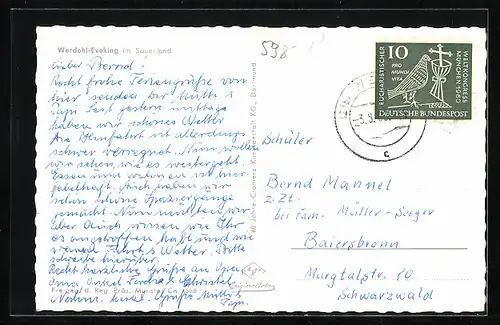 Werdohl-Eveking im Sauerland
Lieber Bernd!
Recht frohe Feriengrüße von
hier senden Dir Mutti &
Papi. Seit gestern mittags
haben wir schönes Wetter.
Die Hinfahrt ist allerdings
schwer verregnet. Nun wollen
wir sehen, wie es weitergeht.
Essen und wohnen ist hier
fabelhaft. Auch haben wir
schon schöne Spaziergänge
gemacht. Nun möchten wir
aber auch wissen wie Ihr
es angetroffen habt und wie
Fahrt & Wetter. Bitte
schreibe hierüber.
Recht herzliche Grüße an Opa,
Oma, Onkel
herzl. Grüße Mutti &
Papi.
Freigeg. d. Reg. Präs. Münster
40 Jahre Cramers Kunstanstalt KG., Dortmund
Cramer
Originalfoto
598-
10
EUCHARISTISCHER
WELTKONGRESS
MÜNCHEN 1960
PRO
MUNDI
VITA
DEUTSCHE BUNDESPOST
c
Schüler
Bernd Mannel
z. Zt.
bei Fam. Müller-Seeger
Baiersbronn
Murgtalstr. 10
Schwarzwald